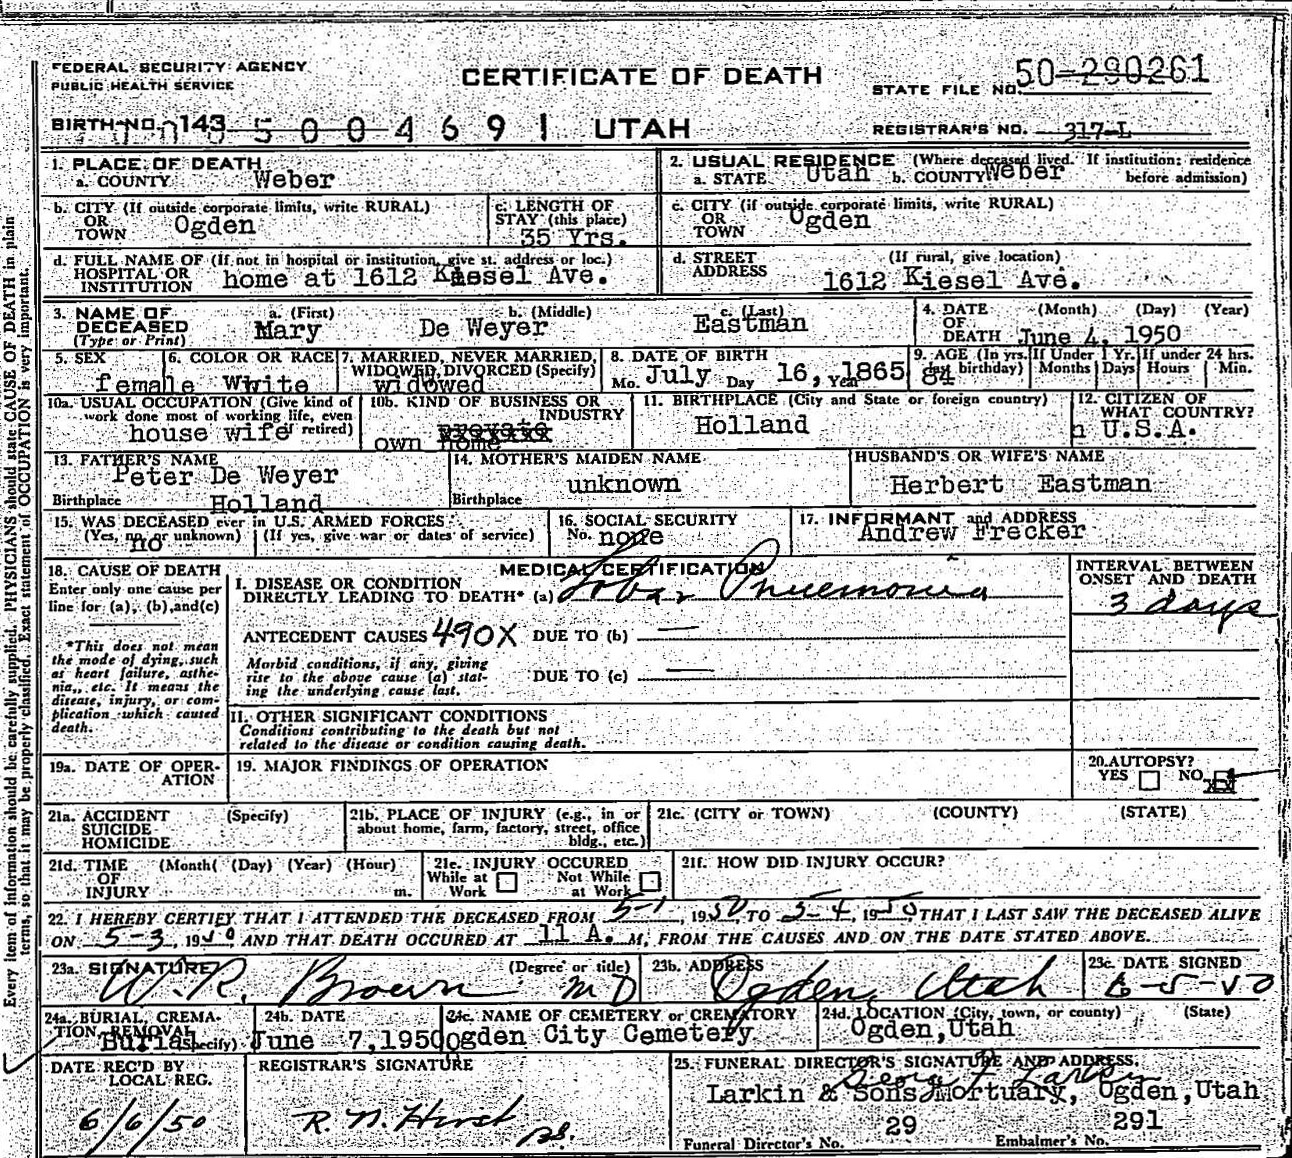 FEDERAL SECURITY AGENCY
PUBLIC HEALTH SERVICE
CERTIFICATE OF DEATH
STATE FILE NO. 50-290261
BIRTH NO. 143 5004691 UTAH
REGISTRAR'S NO. 317-L
1. PLACE OF DEATH
a. COUNTY Weber
2. USUAL RESIDENCE (Where deceased lived. If institution: residence before admission)
a. STATE Utah b. COUNTY Weber
b. CITY (If outside corporate limits, write RURAL)
OR TOWN Ogden
c. LENGTH OF STAY (this place)
35 Yrs.
c. CITY (if outside corporate limits, write RURAL)
OR TOWN Ogden
d. FULL NAME OF (If not in hospital or institution, give st. address or loc.)
HOSPITAL OR INSTITUTION home at 1612 Kiesel Ave.
d. STREET ADDRESS (If rural, give location)
1612 Kiesel Ave.
3. NAME OF DECEASED (Type or Print)
a. (First) b. (Middle) c. (Last)
Mary De Weyer Eastman
4. DATE OF DEATH (Month) (Day) (Year)
June 4, 1950
5. SEX
female
6. COLOR OR RACE
White
7. MARRIED, NEVER MARRIED, WIDOWED, DIVORCED (Specify)
widowed
8. DATE OF BIRTH
Mo. July Day 16, Year 1865
9. AGE (In yrs. last birthday)
84
If Under 1 Yr. Months Days
If under 24 hrs. Hours Min.
10a. USUAL OCCUPATION (Give kind of work done most of working life, even if retired)
house wife
10b. KIND OF BUSINESS OR INDUSTRY
own home
11. BIRTHPLACE (City and State or foreign country)
Holland
12. CITIZEN OF WHAT COUNTRY?
n U.S.A.
13. FATHER'S NAME
Peter De Weyer
Birthplace Holland
14. MOTHER'S MAIDEN NAME
unknown
Birthplace
HUSBAND'S OR WIFE'S NAME
Herbert Eastman
15. WAS DECEASED ever in U.S. ARMED FORCES
(Yes, no, or unknown) (If yes, give war or dates of service)
no
16. SOCIAL SECURITY
No. none
17. INFORMANT and ADDRESS
Andrew Frecker
18. CAUSE OF DEATH
Enter only one cause per line for (a), (b), and (c)
*This does not mean the mode of dying, such as heart failure, asthenia, etc. It means the disease, injury, or complication which caused death.
MEDICAL CERTIFICATION
I. DISEASE OR CONDITION
DIRECTLY LEADING TO DEATH* (a) Lobar Pneumonia
INTERVAL BETWEEN ONSET AND DEATH
3 days
ANTECEDENT CAUSES 490X DUE TO (b) —
Morbid conditions, if any, giving rise to the above cause (a) stating the underlying cause last.
DUE TO (c) —
II. OTHER SIGNIFICANT CONDITIONS
Conditions contributing to the death but not related to the disease or condition causing death.
19a. DATE OF OPERATION
19. MAJOR FINDINGS OF OPERATION
20. AUTOPSY?
YES NO
21a. ACCIDENT SUICIDE HOMICIDE (Specify)
21b. PLACE OF INJURY (e.g., in or about home, farm, factory, street, office bldg., etc.)
21c. (CITY or TOWN) (COUNTY) (STATE)
21d. TIME OF INJURY (Month( (Day) (Year) (Hour)
m.
21e. INJURY OCCURED
While at Work Not While at Work
21f. HOW DID INJURY OCCUR?
22. I HEREBY CERTIFY THAT I ATTENDED THE DECEASED FROM 5-1, 1950 TO 5-4, 1950 THAT I LAST SAW THE DECEASED ALIVE
ON 5-3, 1950 AND THAT DEATH OCCURED AT 11 A. M, FROM THE CAUSES AND ON THE DATE STATED ABOVE.
23a. SIGNATURE (Degree or title)
W.R. Brown MD
23b. ADDRESS
Ogden, Utah
23c. DATE SIGNED
6-5-50
24a. BURIAL, CREMATION, REMOVAL (Specify)
Burial
24b. DATE
June 7, 1950
24c. NAME OF CEMETERY or CREMATORY
Ogden City Cemetery
24d. LOCATION (City, town, or county) (State)
Ogden, Utah
DATE REC'D BY LOCAL REG.
6/6/50
REGISTRAR'S SIGNATURE
R. N. Hirst
25. FUNERAL DIRECTOR'S SIGNATURE AND ADDRESS.
George F. Larkin
Larkin & Sons Mortuary, Ogden, Utah
29 291
Funeral Director's No. Embalmer's No.
Every item of information should be carefully supplied. PHYSICIANS should state CAUSE OF DEATH in plain
terms, so that it may be properly classified. Exact statement of OCCUPATION is very important.